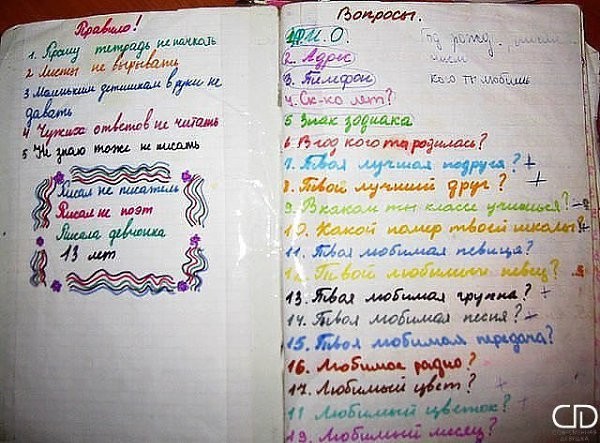 Правило!
1. Прошу тетрадь не пачкать
2 Листы не вырывать
3 Маленьким детишкам в руки не
давать
4 Чужих ответов не читать
5 Не знаю тоже не писать
Писал не писатель
Писал не поэт
Писала девчонка
13 лет
Вопросы.
1 Ф.И.О.
Год рожд.
2. Адрес
3. Телефон
кого ты любишь
4. Ск-ко лет?
5 Знак зодиака
6 В год кого ты родилась?
7. Твоя лучшая подруга? +
8. Твой лучший друг? +
9 В каком ты классе учишься?
10. Какой номер твоей школы? +
11. Твоя любимая певица?
12 Твой любимый певец?
13. Твоя любимая группа? +
14. Твоя любимая песня? +
15. Твоя любимая передача?
16. Любимое радио?
17. Любимый цвет? +
11 Любимый цветок? +
19. Любимый месяц?